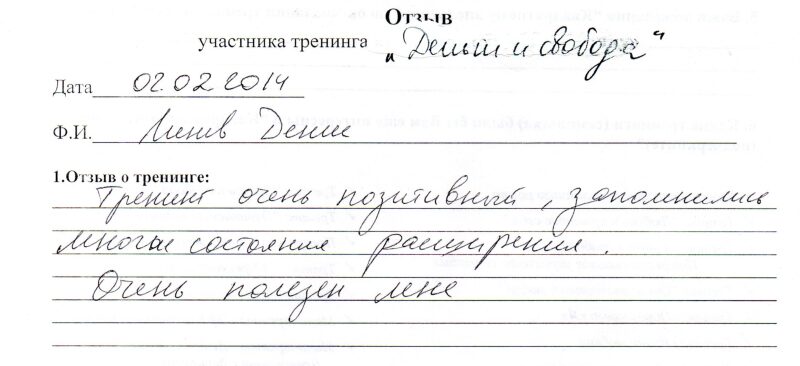 Отзыв
участника тренинга „Деньги и свобода“
Дата 02.02.2014
Ф.И. Линев Денис
1.Отзыв о тренинге:
Тренинг очень позитивный, запомнились
многие состояния расширения.
Очень полезен мне